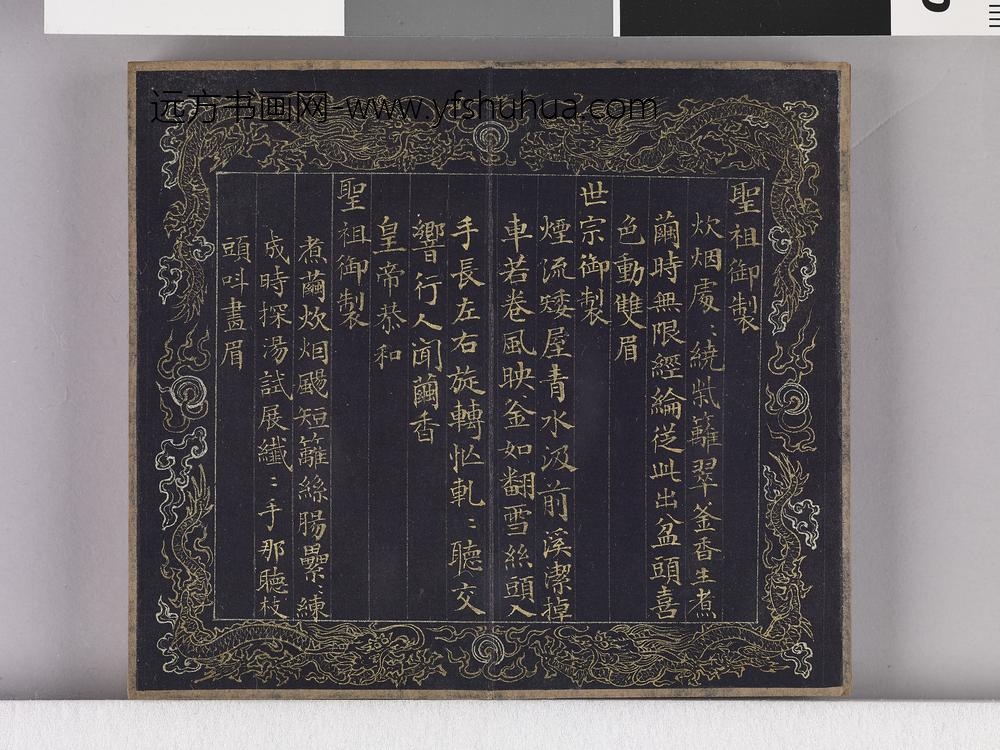 远方书画网-www.yfshuhua.com
聖祖御製
炊烟處〻繞柴籬翠釜香生煮
繭時無限經綸從此出盆頭喜
色動雙眉
世宗御製
煙流矮屋青水汲前溪潔掉
車若卷風映釜如翻雪絲頭入
手長左右旋轉忙軋〻聽交
響行人聞繭香
皇帝恭和
聖祖御製
煮繭炊烟颺短籬絲腸纍〻練
成時探湯試展纖〻手那聽枝
頭叫畫眉